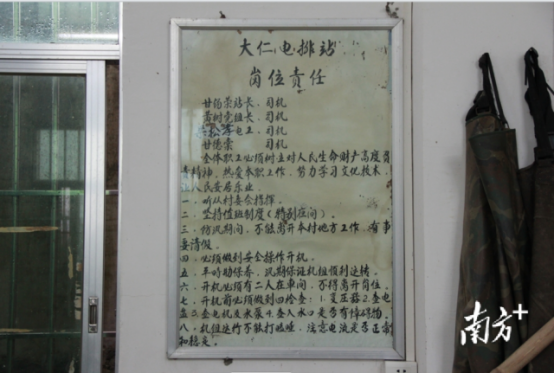 大仁电排站
岗位责任
站长、司机
组长、司机
电工、司机
甘德崇 司机
全体职工必须树立对人民生命财产高度负
责精神,热爱本职工作,努力学习文化技术,
人民安居乐业。
一、听从村委会指挥。
二、坚持值班制度(特别夜间)。
三、防汛期间,不能离开本村地方工作,有事
要请假。
四、必须做到安全操作开机。
五、平时勤保养,汛期保证机组做到运转。
六、开机必须有二人在车间,不得离开岗位。
七、开机前必须做到四检查:1.变压器2.查电
3.查电机及水泵4.查入水口是否有障碍物。
八、机组运行不能打瞌睡,注意电流是否正常
和稳定。
南方+